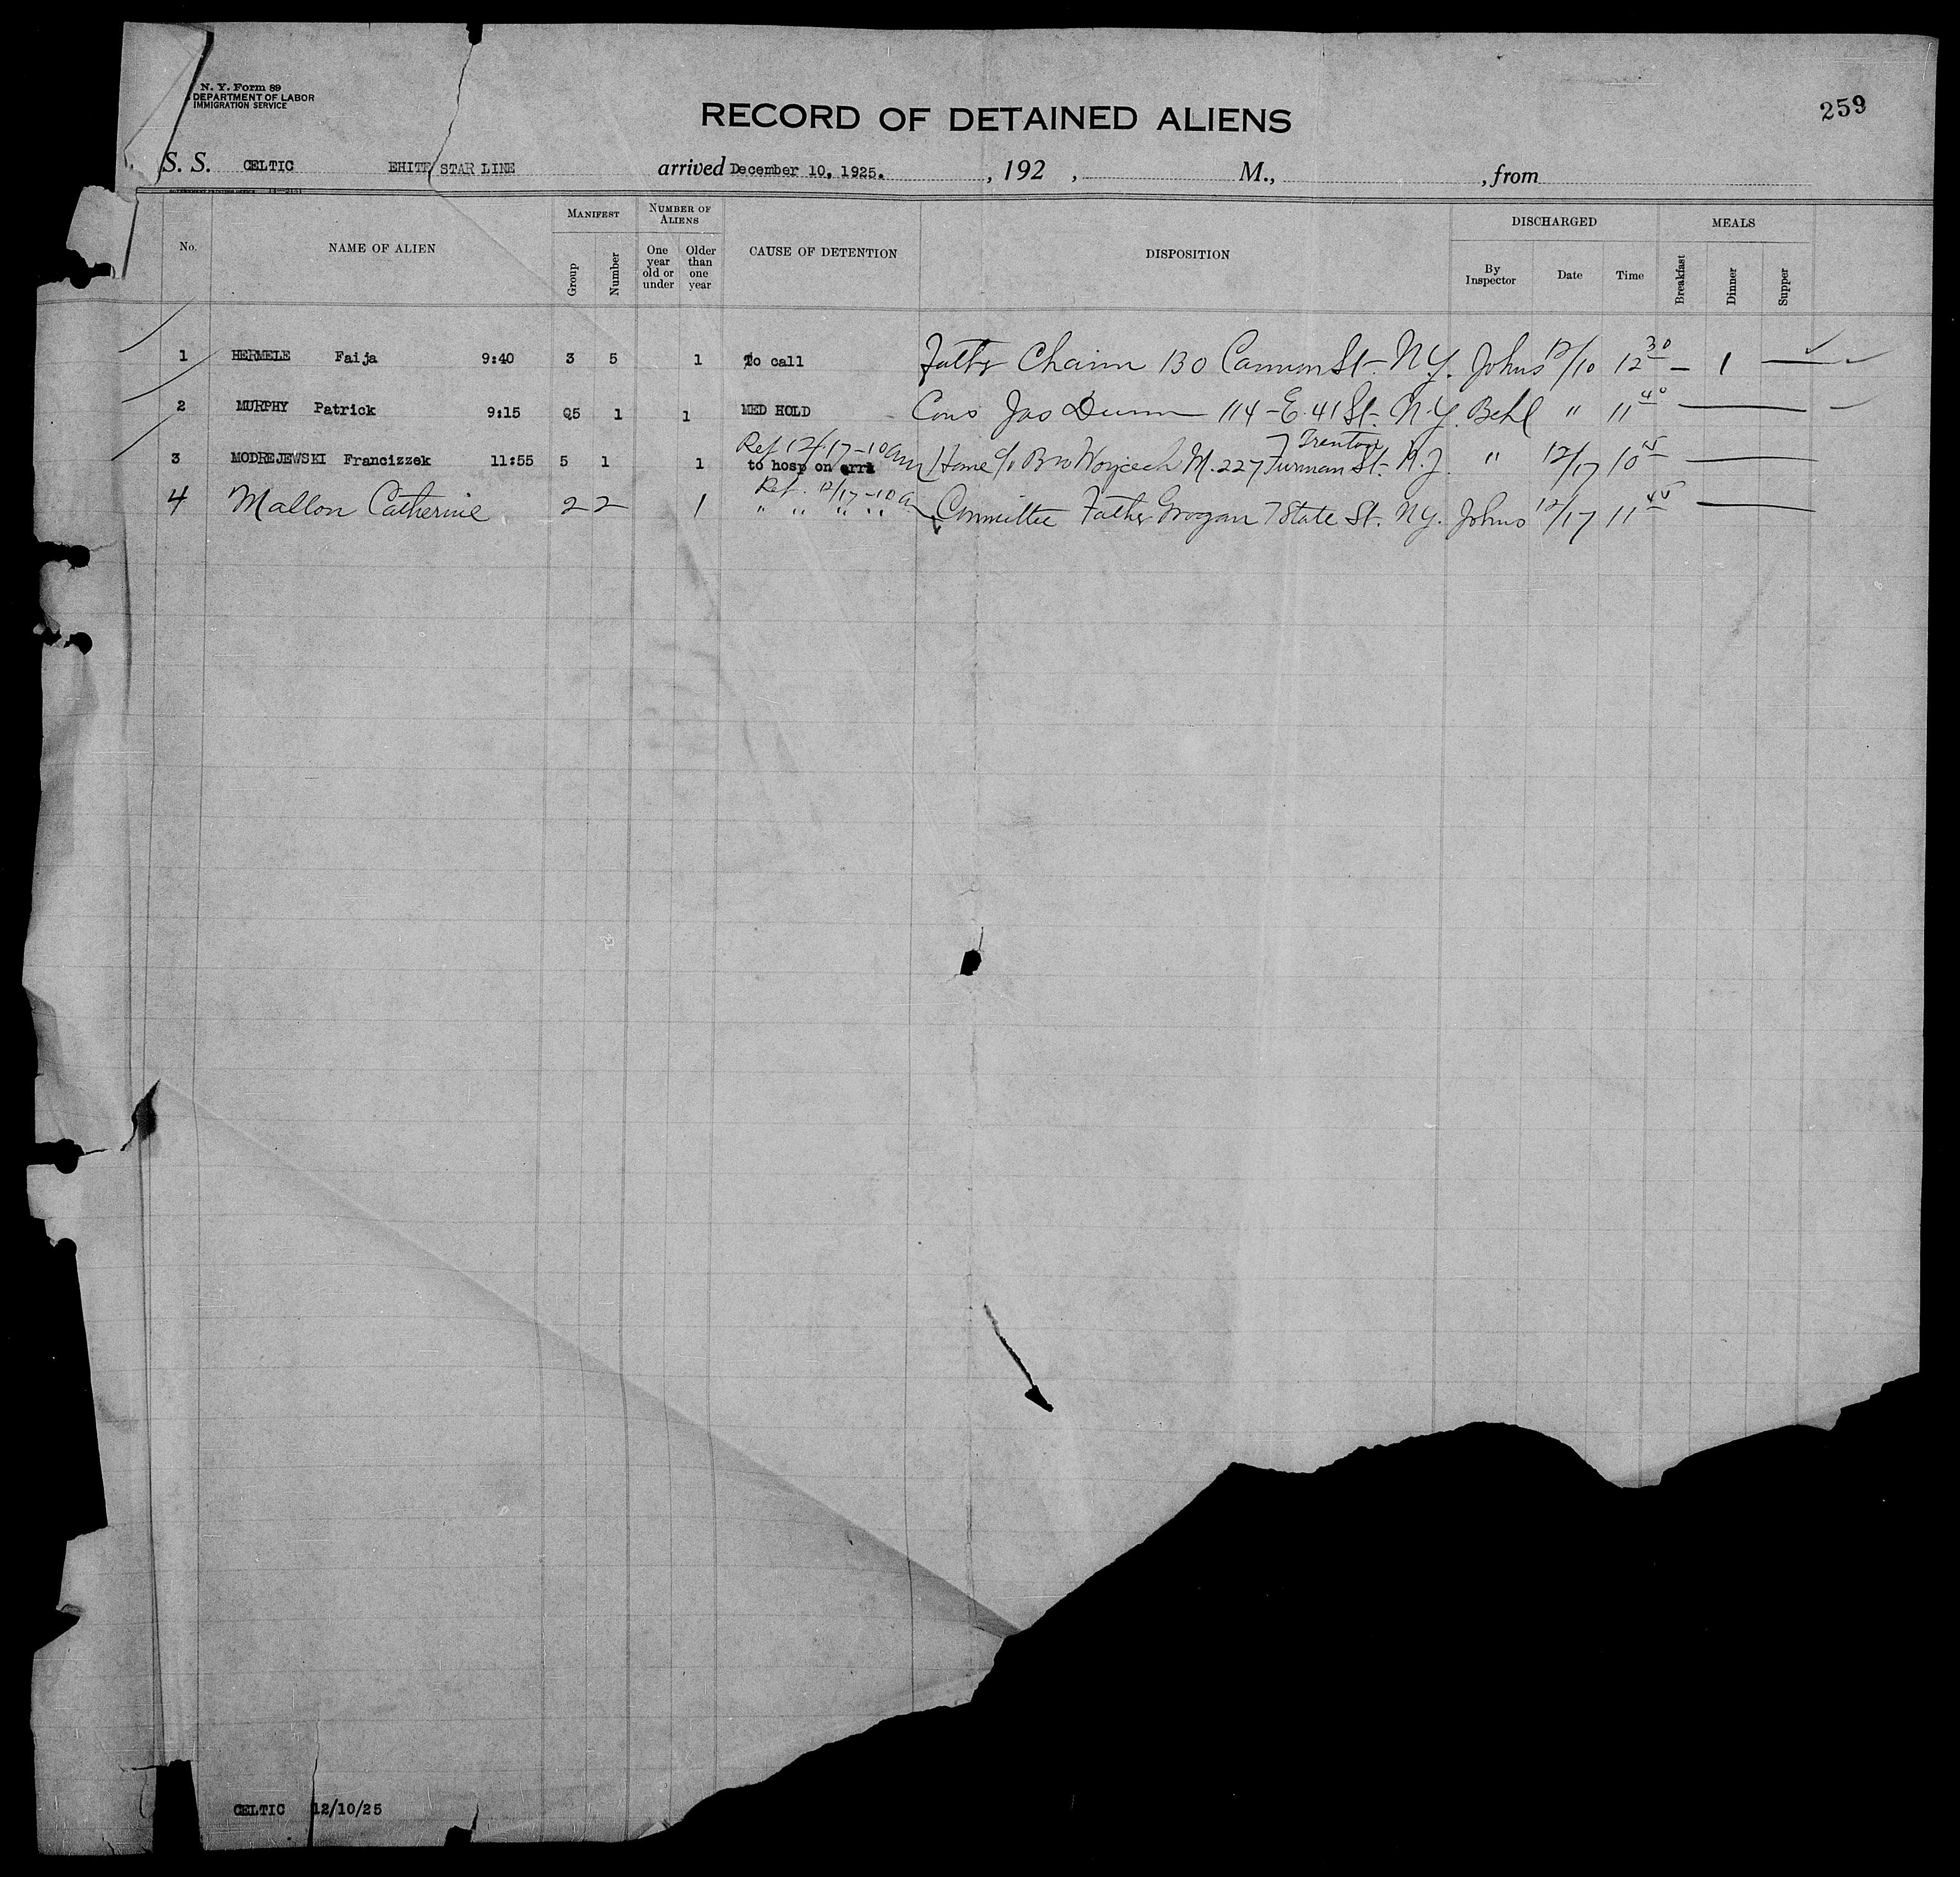 N. Y. Form 89
DEPARTMENT OF LABOR
IMMIGRATION SERVICE
RECORD OF DETAINED ALIENS
259
S. S. CELTIC EHITE STAR LINE arrived December 10, 1925. , 192 , M., , from
No. NAME OF ALIEN MANIFEST Group Number NUMBER OF ALIENS One year old or under Older than one year CAUSE OF DETENTION DISPOSITION DISCHARGED By Inspector Date Time MEALS Breakfast Dinner Supper
1 HERMELE Faija 9:40 3 5 1 To call Father Chaim 130 Cannon St. N.Y. Johns 12/10 12 30 — 1 —
2 MURPHY Patrick 9:15 Q5 1 1 MED HOLD Cons Jas Dunn 114 - E. 41 St. N.Y. Behl " 11 40
Ref 12/17-10am Trenton
3 MODREJEWSKI Francizzek 11:55 5 1 1 to hosp on arri Home c/o Bro Wojcech M. 227 Furman St. N.J. " 12/17 10 15
Ref. 12/17-10a
4 Mallon Catherine 2 2 1 " " " " Committee Father Grogan 7 State St. N.Y. Johns 12/17 11 45
CELTIC 12/10/25